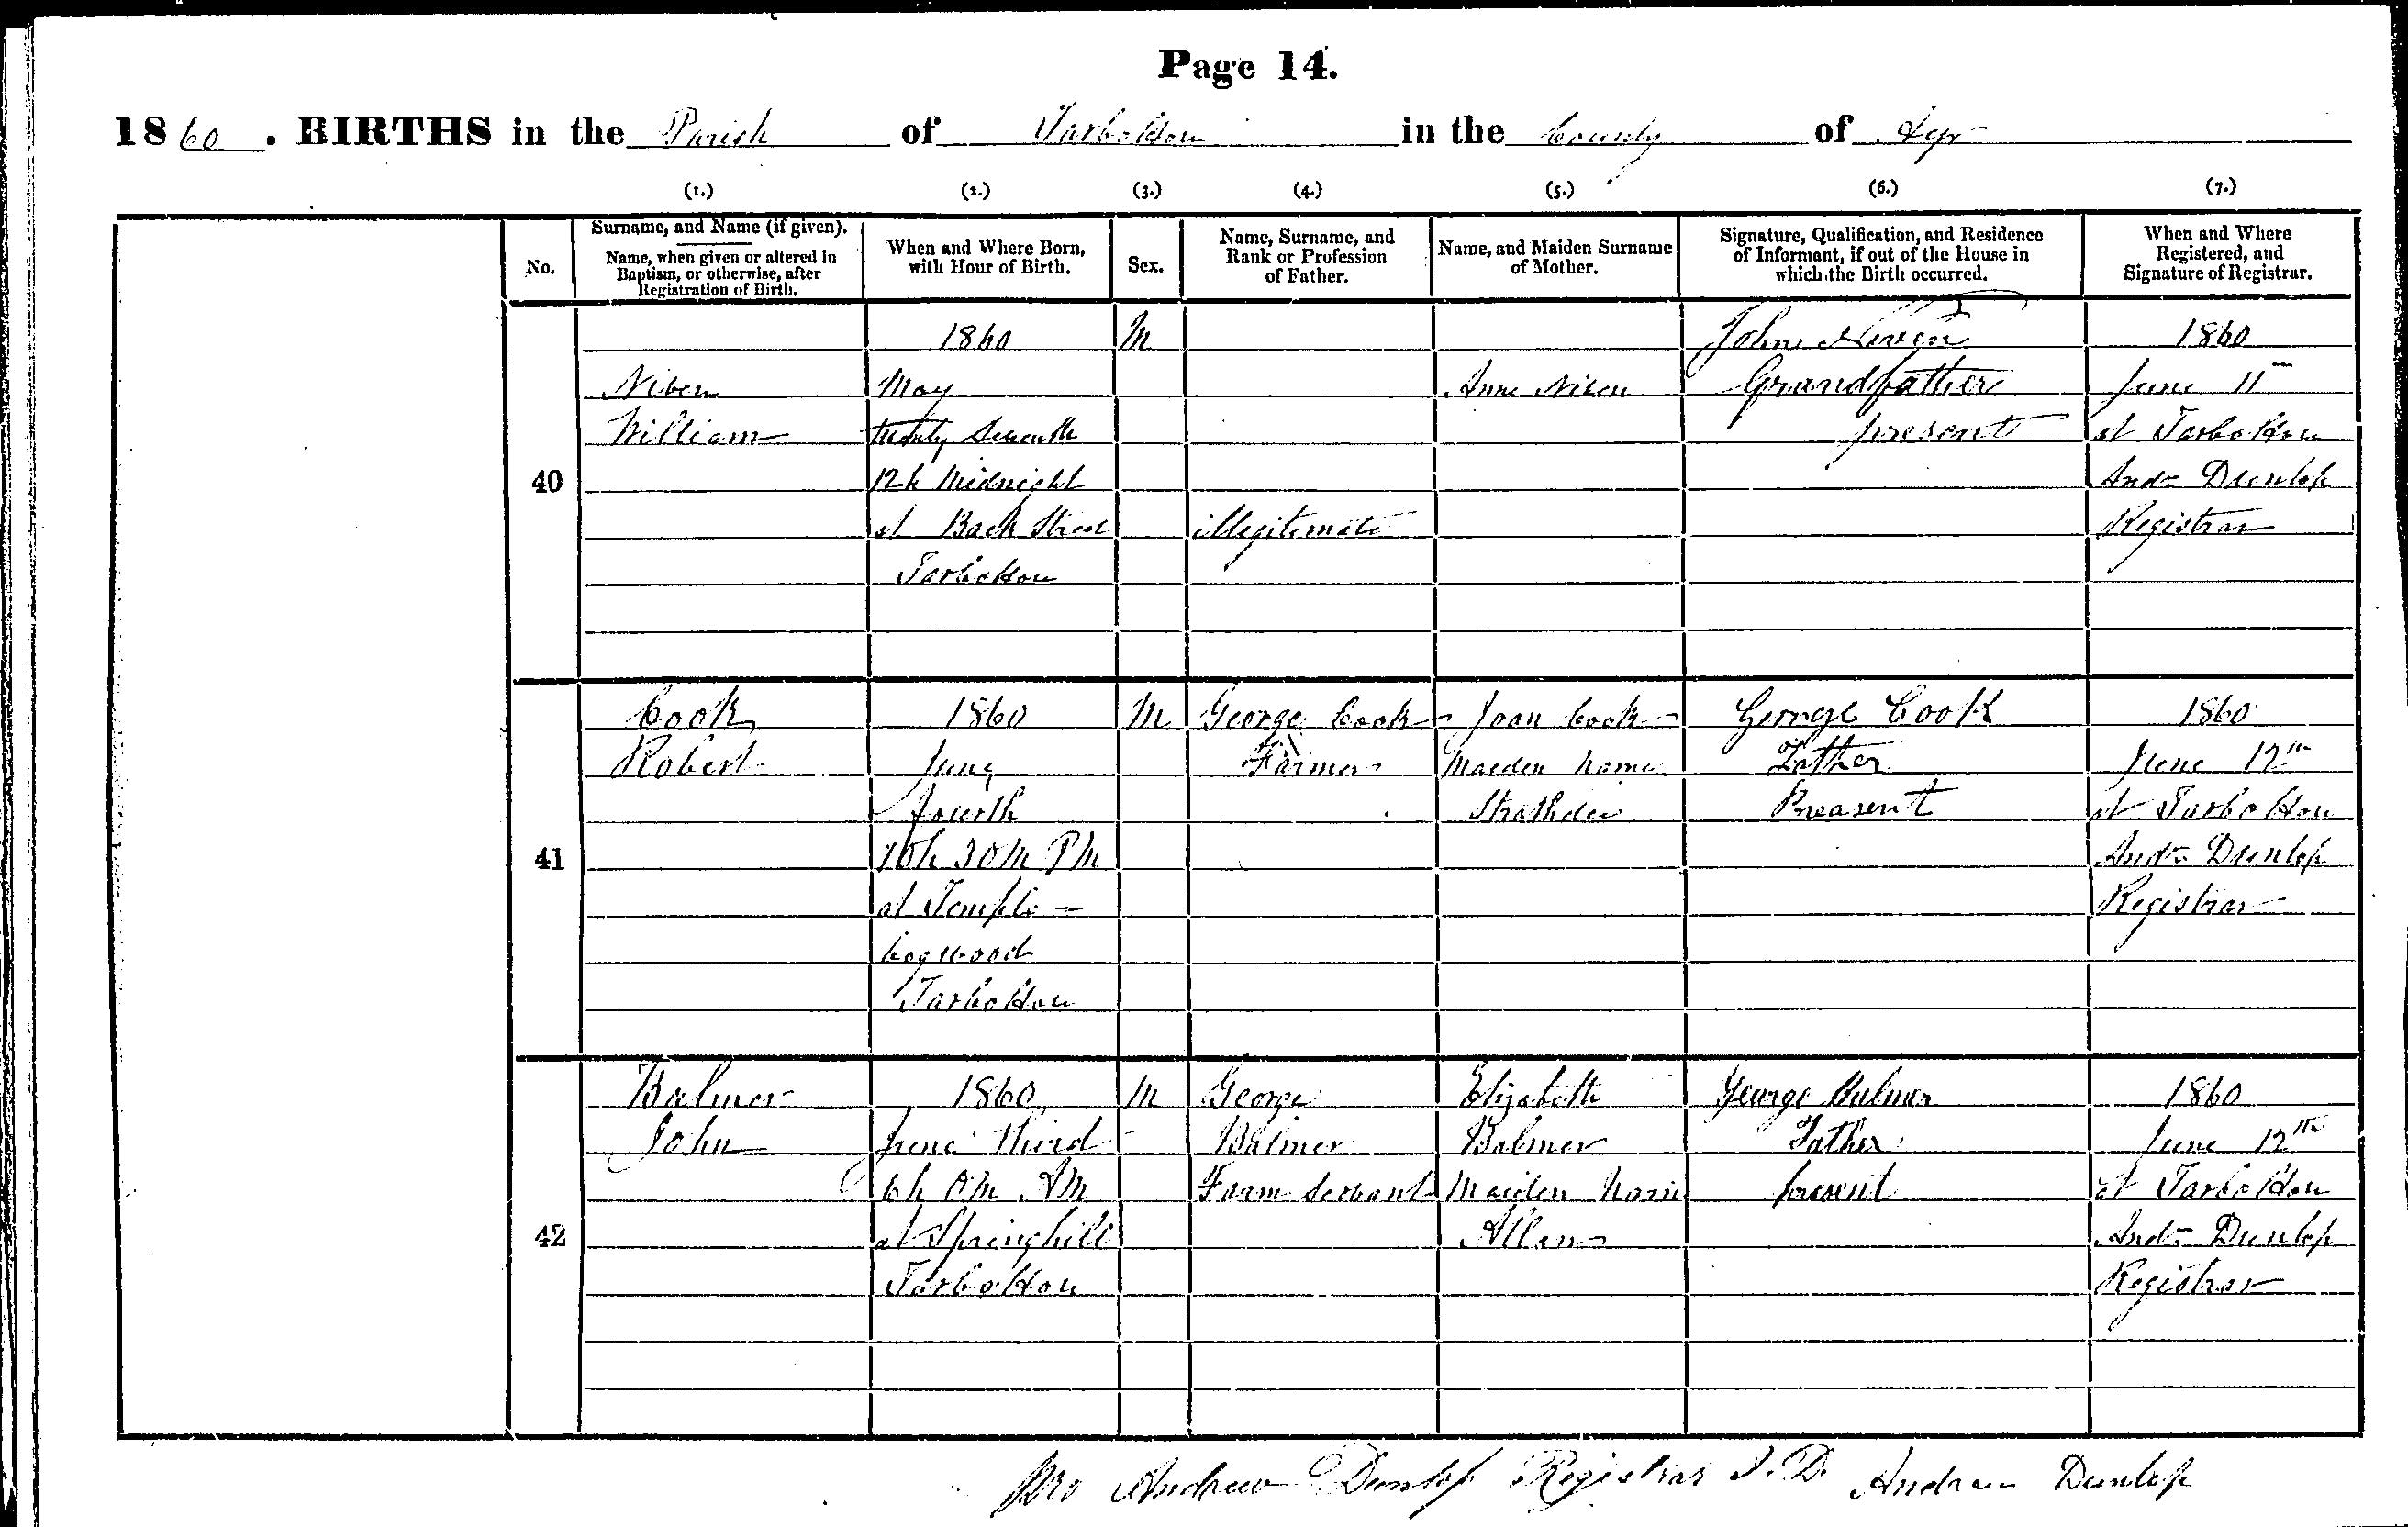 Page 14.
1860. BIRTHS in the Parish of Tarbolton in the County of Ayr
(1.) (2.) (3.) (4.) (5.) (6.) (7.)
No.
Surname, and Name (if given).
Name, when given or altered in
Baptism, or otherwise, after
Registration of Birth.
When and Where Born,
with Hour of Birth.
Sex.
Name, Surname, and
Rank or Profession
of Father.
Name, and Maiden Surname
of Mother.
Signature, Qualification, and Residence
of Informant, if out of the House in
which the Birth occurred.
When and Where
Registered, and
Signature of Registrar.
40
Niven
William
1860
May
twenty Seventh
12h Midnight
at Back Street
Tarbolton
M
illegitimate
Anne Niven
John Niven
Grandfather
present
1860
June 11
at Tarbolton
Andw Dunlop
Registrar
41
Cook
Robert
1860
June
fourth
10h 30m PM
at Temple-
bogwood
Tarbolton
M
George Cook
Farmer
Joan Cook
Maiden Name
George Cook
Father
Preasent
1860
June 12th
at Tarbolton
Andw Dunlop
Registrar
42
Balmer
John
1860
June third
6h 0m AM
at Springhill
Tarbolton
M
George
Balmer
Farm Servant
Elizabeth
Balmer
Maiden Name
Allan
George Balmer
Father
present
1860
June 12th
at Tarbolton
Andw Dunlop
Registrar
pro Andrew Dunlop Registrar J.D. Andrew Dunlop